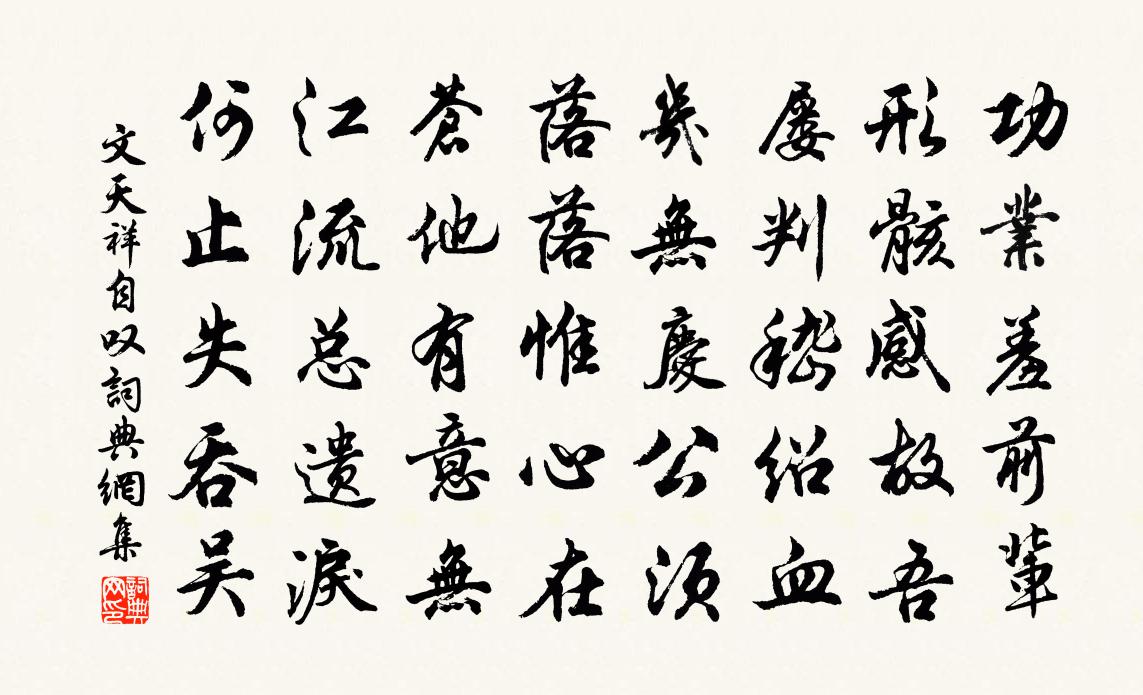 功業羞前輩
形骸感故吾
屡判嵇绍血
幾無慶公須
落落惟心在
蒼他有意無
江流总遺淚
何止失吞吴
文天祥自叹詞典網集
詞典网印